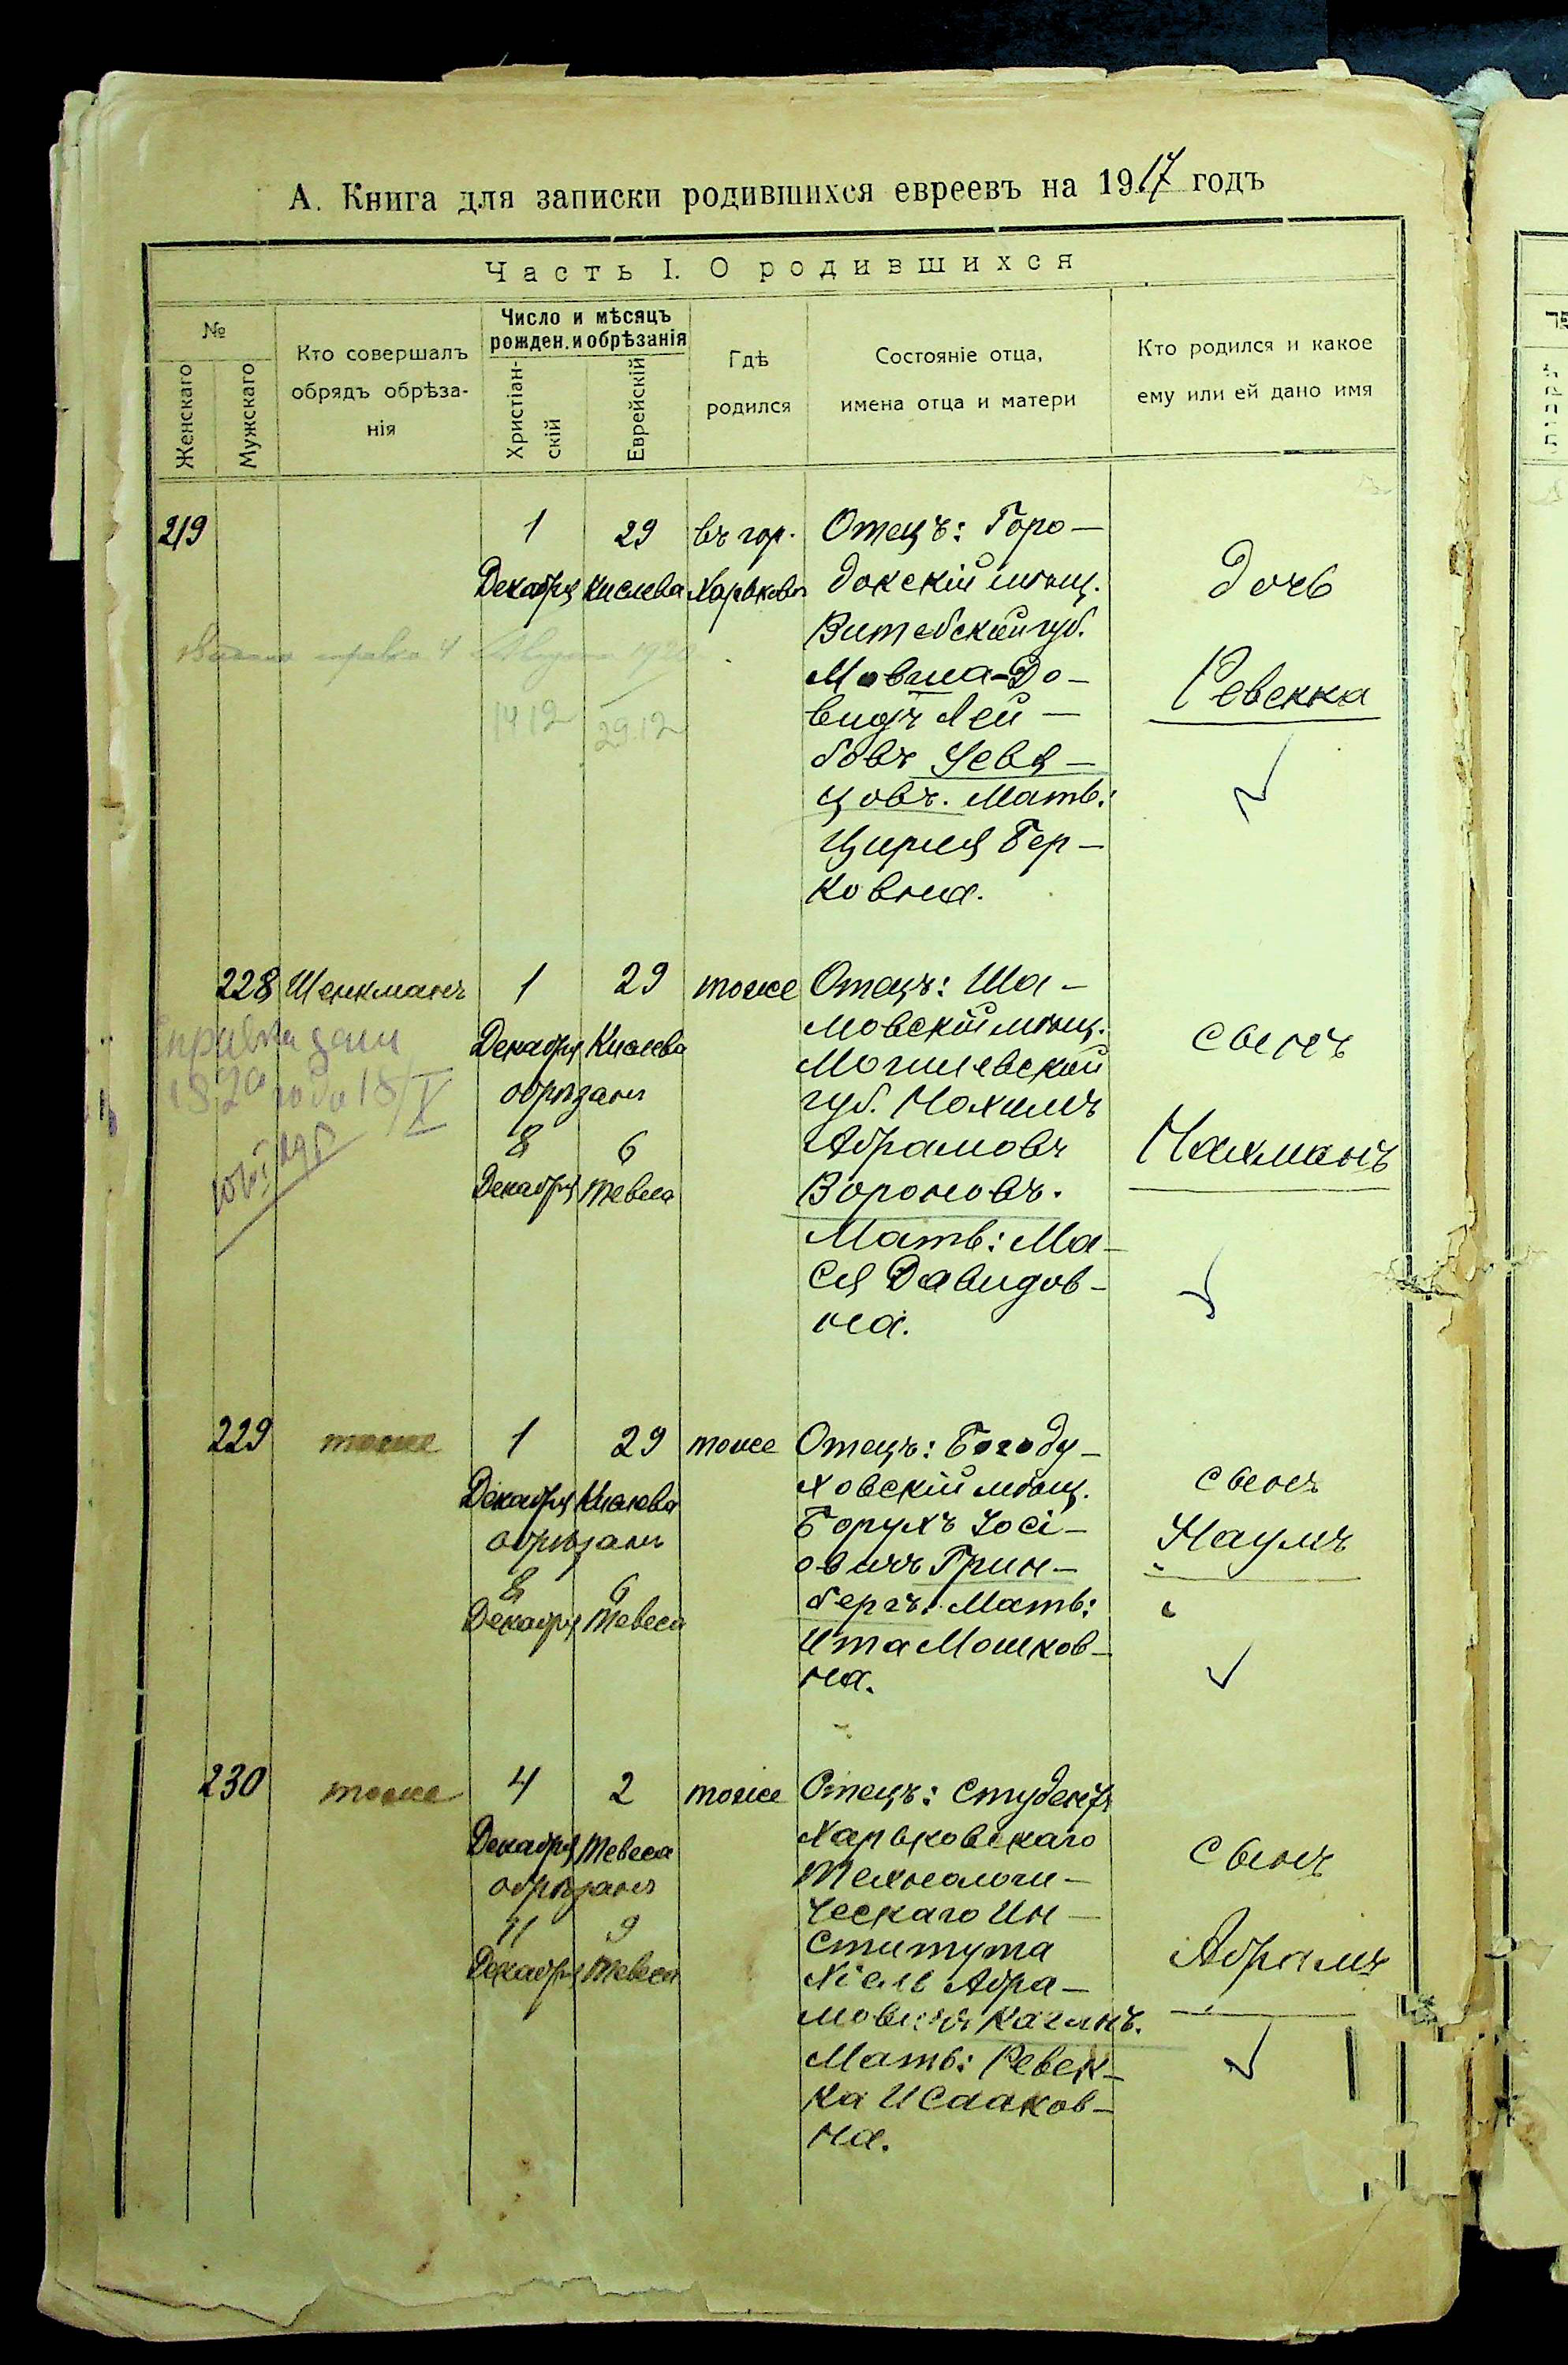 А. Книга для записки родившихся евреевъ на 1917 годъ
Часть I. О родившихся
№
Женскаго
Мужскаго
Кто совершалъ
обрядъ обрѣза-
нія
Число и мѣсяцъ
рожден. и обрѣзанія
Христіан-
скій
Еврейскій
Гдѣ
родился
Состояніе отца,
имена отца и матери
Кто родился и какое
ему или ей дано имя
219
1
Декабря
29
Кислева
въ гор.
Харьковѣ
Отецъ: Горо-
докскій мѣщ.
Витебской губ.
Мовша-До-
видъ Лей-
бовъ
цовъ. Мать:
Цирля Бер-
ковна.
дочь
Ревекка
справка 4 1920
14 12
29.12
228
Шенкманъ
1
Декабря
обрѣзанъ
8
Декабря
29
Кислева
6
Тевеса
тоже
Отецъ: Ша-
мовскій мѣщ.
Могилевской
губ. Нохимъ
Абрамовъ
Вороновъ.
Мать: Ма-
ся Давидов-
на.
сынъ
Нахманъ
справка дана
192 года 18/X
229
тоже
1
Декабря
обрѣзанъ
8
Декабря
29
Кислева
6
Тевеса
тоже
Отецъ: Богоду-
ховскій мѣщ.
Борухъ Іосі-
овичъ Грин-
бергъ. Мать:
Ита Мошков-
на.
сынъ
Наумъ
230
тоже
4
Декабря
обрѣзанъ
11
Декабря
2
Тевеса
9
Тевеса
тоже
Отецъ: Студентъ
Харьковскаго
Технологи-
ческаго Ин-
ститута
Хіель Абра-
мовичъ Каганъ.
Мать: Ревек-
ка Исааков-
на.
сынъ
Абрамъ